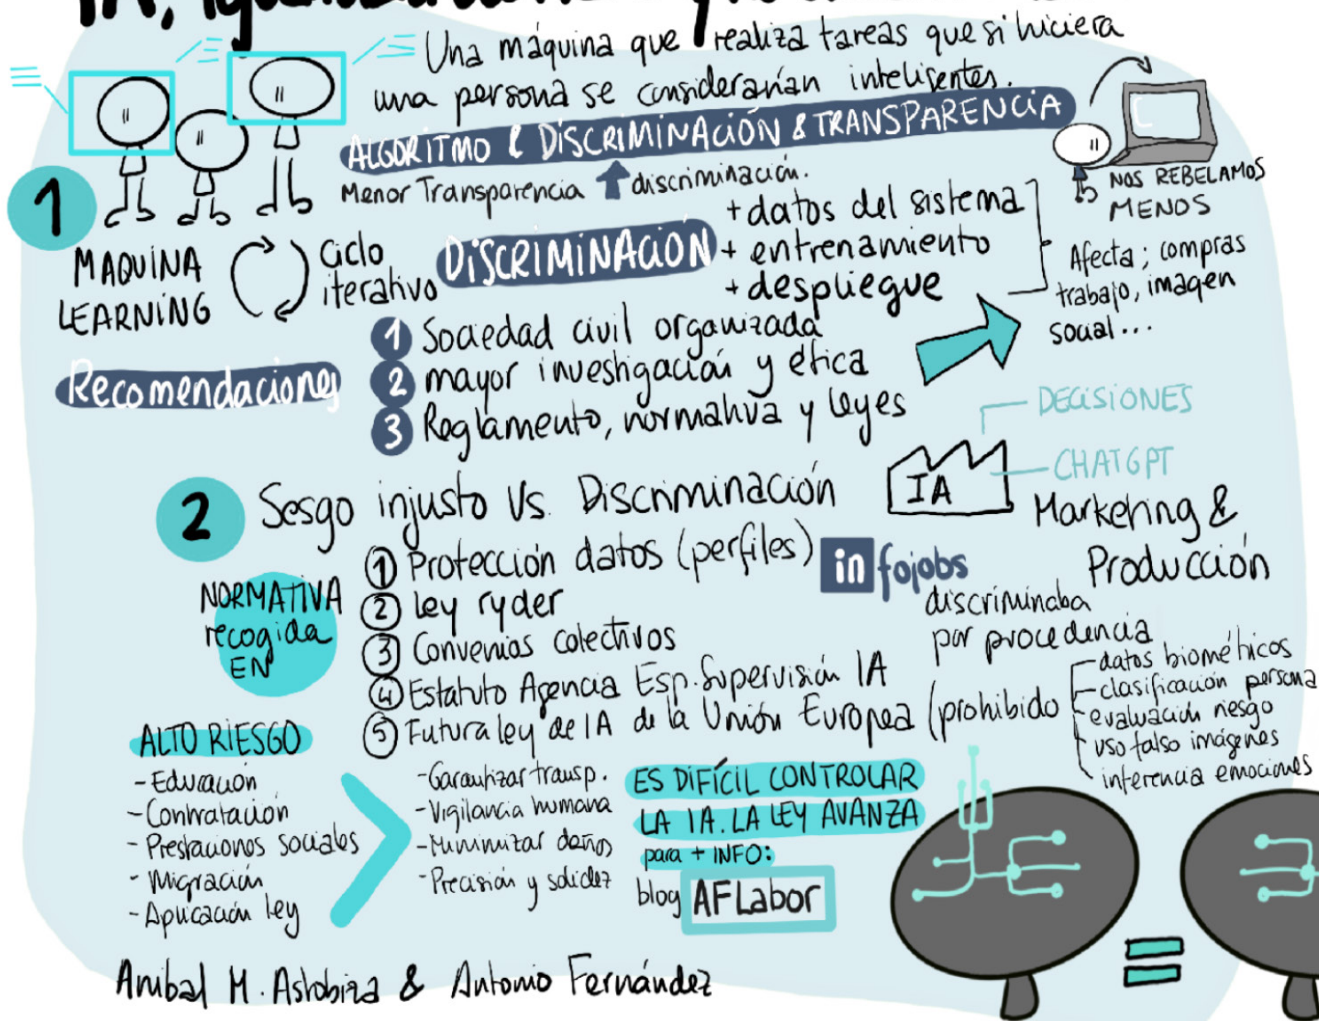 IA, igualdad
Una máquina que realiza tareas que si hiciera
una persona se considerarían inteligentes.
ALGORITMO & DISCRIMINACIÓN & TRANSPARENCIA
Menor Transparencia discriminación.
NOS REBELAMOS
MENOS
1
MAQUINA
LEARNING
Ciclo
iterativo
DISCRIMINACIÓN
+ datos del sistema
+ entrenamiento
+ despliegue
Afecta; compras
trabajo, imagen
social...
Recomendaciones
1 Sociedad civil organizada
2 mayor investigación y ética
3 Reglamento, normativa y leyes
DECISIONES
CHATGPT
IA
Marketing &
Producción
2 Sesgo injusto Vs. Discriminación
NORMATIVA
recogida
EN
1 Protección datos (perfiles)
2 ley ryder
3 Convenios colectivos
4 Estatuto Agencia Esp. Supervisión IA
5 Futura ley de IA de la Unión Europea (prohibido
infojobs
discriminaba
por procedencia
- datos biométricos
- clasificación persona
- evaluación riesgo
- uso falso imágenes
- inferencia emociones
ALTO RIESGO
- Educación
- Contratación
- Prestaciones sociales
- Migración
- Aplicación ley
- Garantizar transp.
- Vigilancia humana
- Minimizar daños
- Precisión y solidez
ES DIFÍCIL CONTROLAR
LA IA. LA LEY AVANZA
para + INFO:
blog AFLabor
Aníbal M. Astobiza & Antonio Fernández